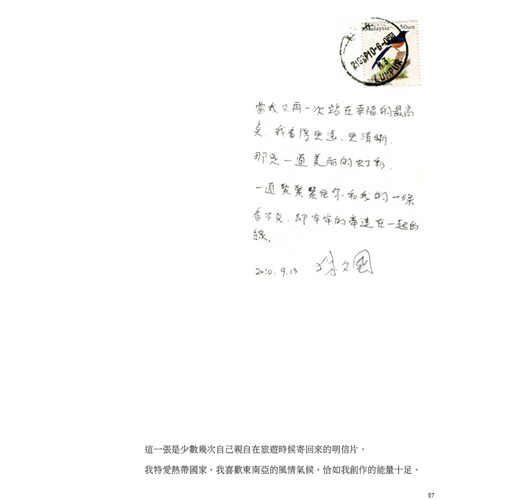 Malaysia 50 sen
LUMPUR
當我又再一次站在幸福的最高
點，我看得更遠、更清晰，
那是一道美丽的虹彩，
一道緊緊緊住你和我的一條
看不見，却牢牢的牽連在一起的
線。
2010. 9. 13
這一張是少數幾次自己親自在旅遊時候寄回來的明信片，
我特愛熱帶國家，我喜歡東南亞的風情氣候，恰如我創作的能量十足。
57